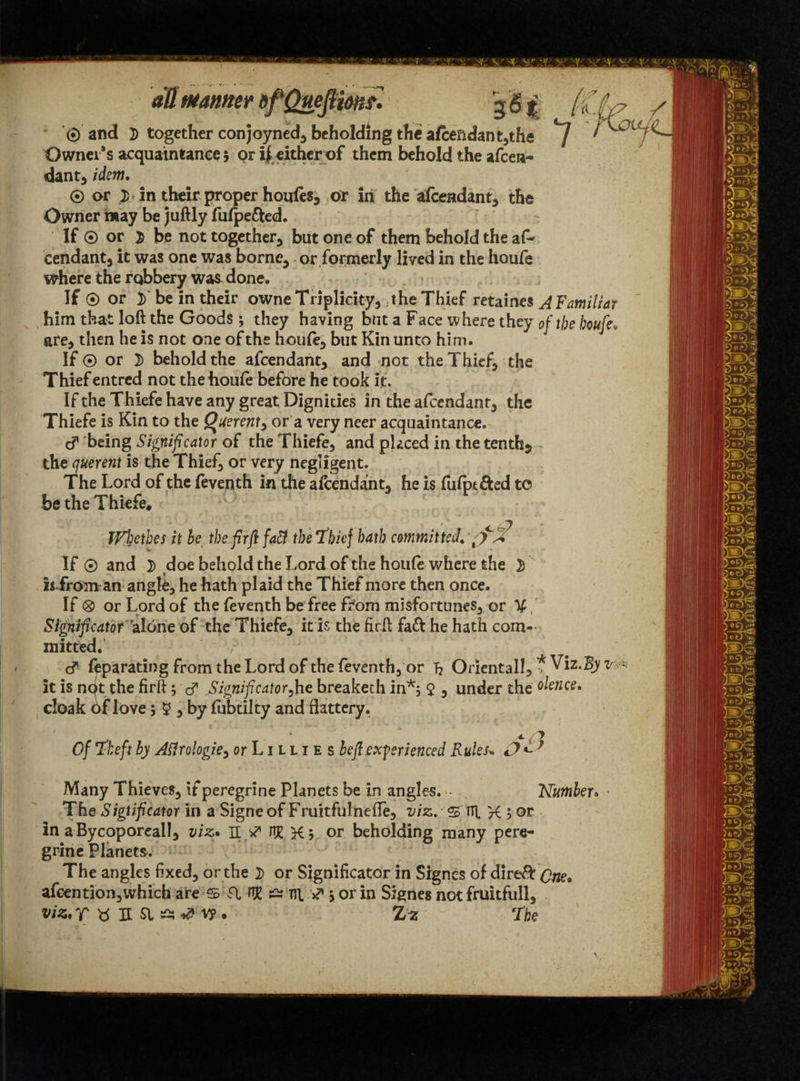 all manner of Questions. 361
☉ and ☽ together conjoyned, beholding the ascendant, the
Owner's acquaintance; or if either of them behold the ascen-
dant, idem.
☉ or ☽ in their proper houses, or in the ascendant, the
Owner may be justly suspected.
If ☉ or ☽ be not together, but one of them behold the as-
cendant, it was one was borne, or formerly lived in the house
where the robbery was done.
If ☉ or ☽ be in their owne Triplicity, the Thief retaines A Familiar
him that lost the Goods; they having but a Face where they of the house.
are, then he is not one of the house, but Kin unto him.
If ☉ or ☽ behold the ascendant, and not the Thief, the
Thief entred not the house before he took it.
If the Thiefe have any great Dignities in the ascendant, the
Thiefe is Kin to the Querent, or a very neer acquaintance.
♂ being Significator of the Thiefe, and placed in the tenth,
the querent is the Thief, or very negligent.
The Lord of the seventh in the ascendant, he is suspected to
be the Thiefe.
Whethes it be the first fact the Thief hath committed.
If ☉ and ☽ doe behold the Lord of the house where the ☽
is from an angle, he hath plaid the Thief more then once.
If ⊗ or Lord of the seventh be free from misfortunes, or ♃
Significator alone of the Thiefe, it is the first fact he hath com-
mitted.
♂ separating from the Lord of the seventh, or ♄ Orientall, * Viz. By v
it is not the first; ♂ Significator, he breaketh in*; ♀, under the olence.
cloak of love; ☿, by subtilty and flattery.
Of Theft by Astrologie, or LILLIES best experienced Rules.
Many Thieves, if peregrine Planets be in angles. Number.
The Sigtificator in a Signe of Fruitfulnesse, viz. ♋ ♏ ♓; or
in a Bycoporeall, viz. ♊ ♐ ♍ ♓; or beholding many pere-
grine Planets.
The angles fixed, or the ☽ or Significator in Signes of direct One.
ascention, which are ♋ ♌ ♍ ♎ ♏ ♐; or in Signes not fruitfull,
viz. ♈ ♉ ♊ ♌ ♎ ♐ ♑.
Zz The